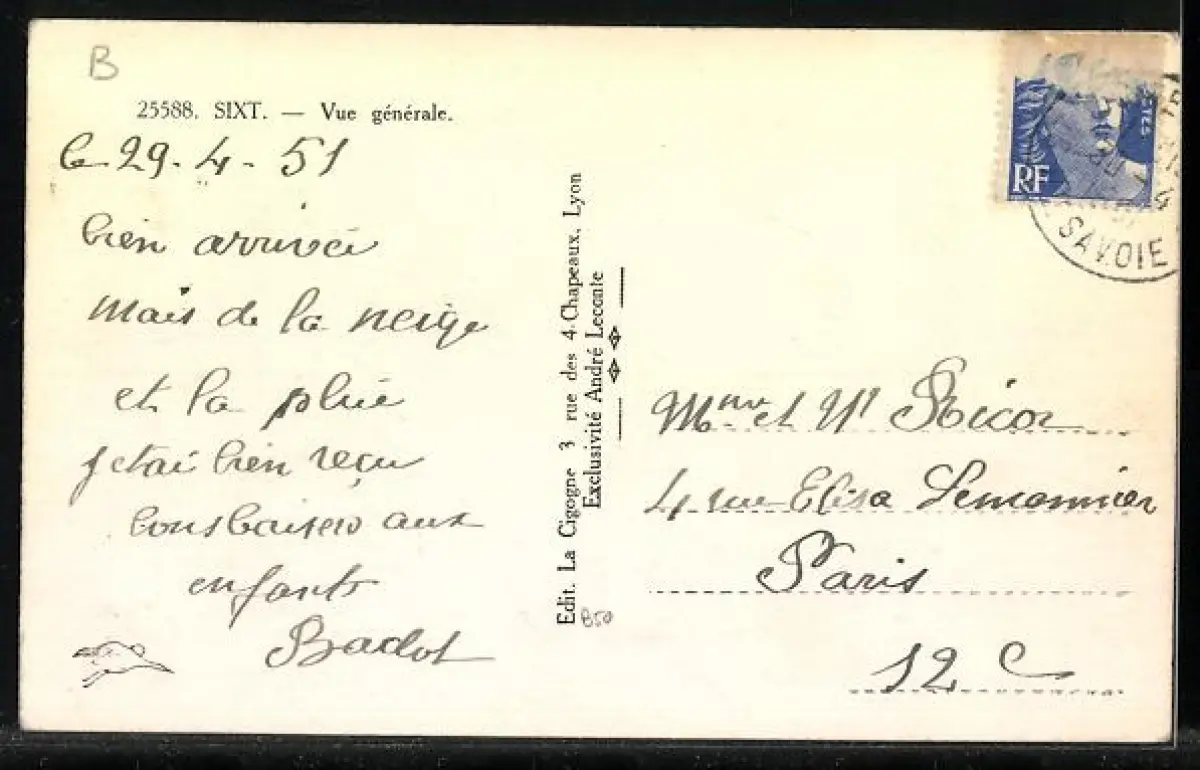 B
25588. SIXT. — Vue générale.
le 29-4-51
bien arrivée
mais de la neige
et la pluie
jetai bien reçu
bonsbaisers aux
enfants
Badot
Edit. La Cigogne 3 rue des 4-Chapeaux, Lyon
Exclusivité André Leconte
850
RF
SAVOIE
Mme et Mr
4 rue Elisa Lemonnier
Paris
12 e